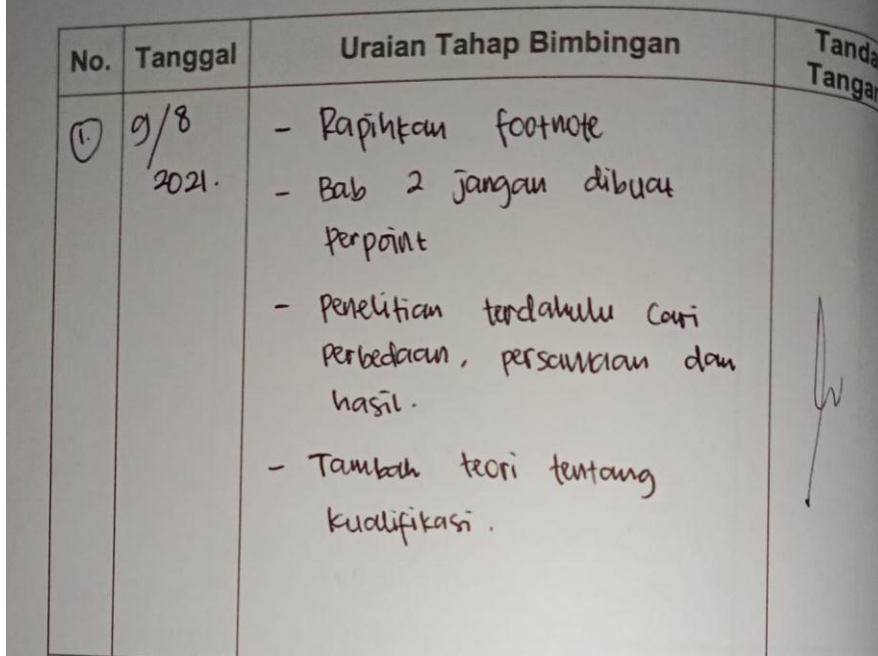 No. Tanggal Uraian Tahap Bimbingan Tanda
Tangan
1. 9/8 - Rapihkan footnote
2021. - Bab 2 jangan dibuat
perpoint
- Penelitian terdahulu cari
perbedaan, persamaan dan
hasil.
- Tambah teori tentang
kualifikasi.